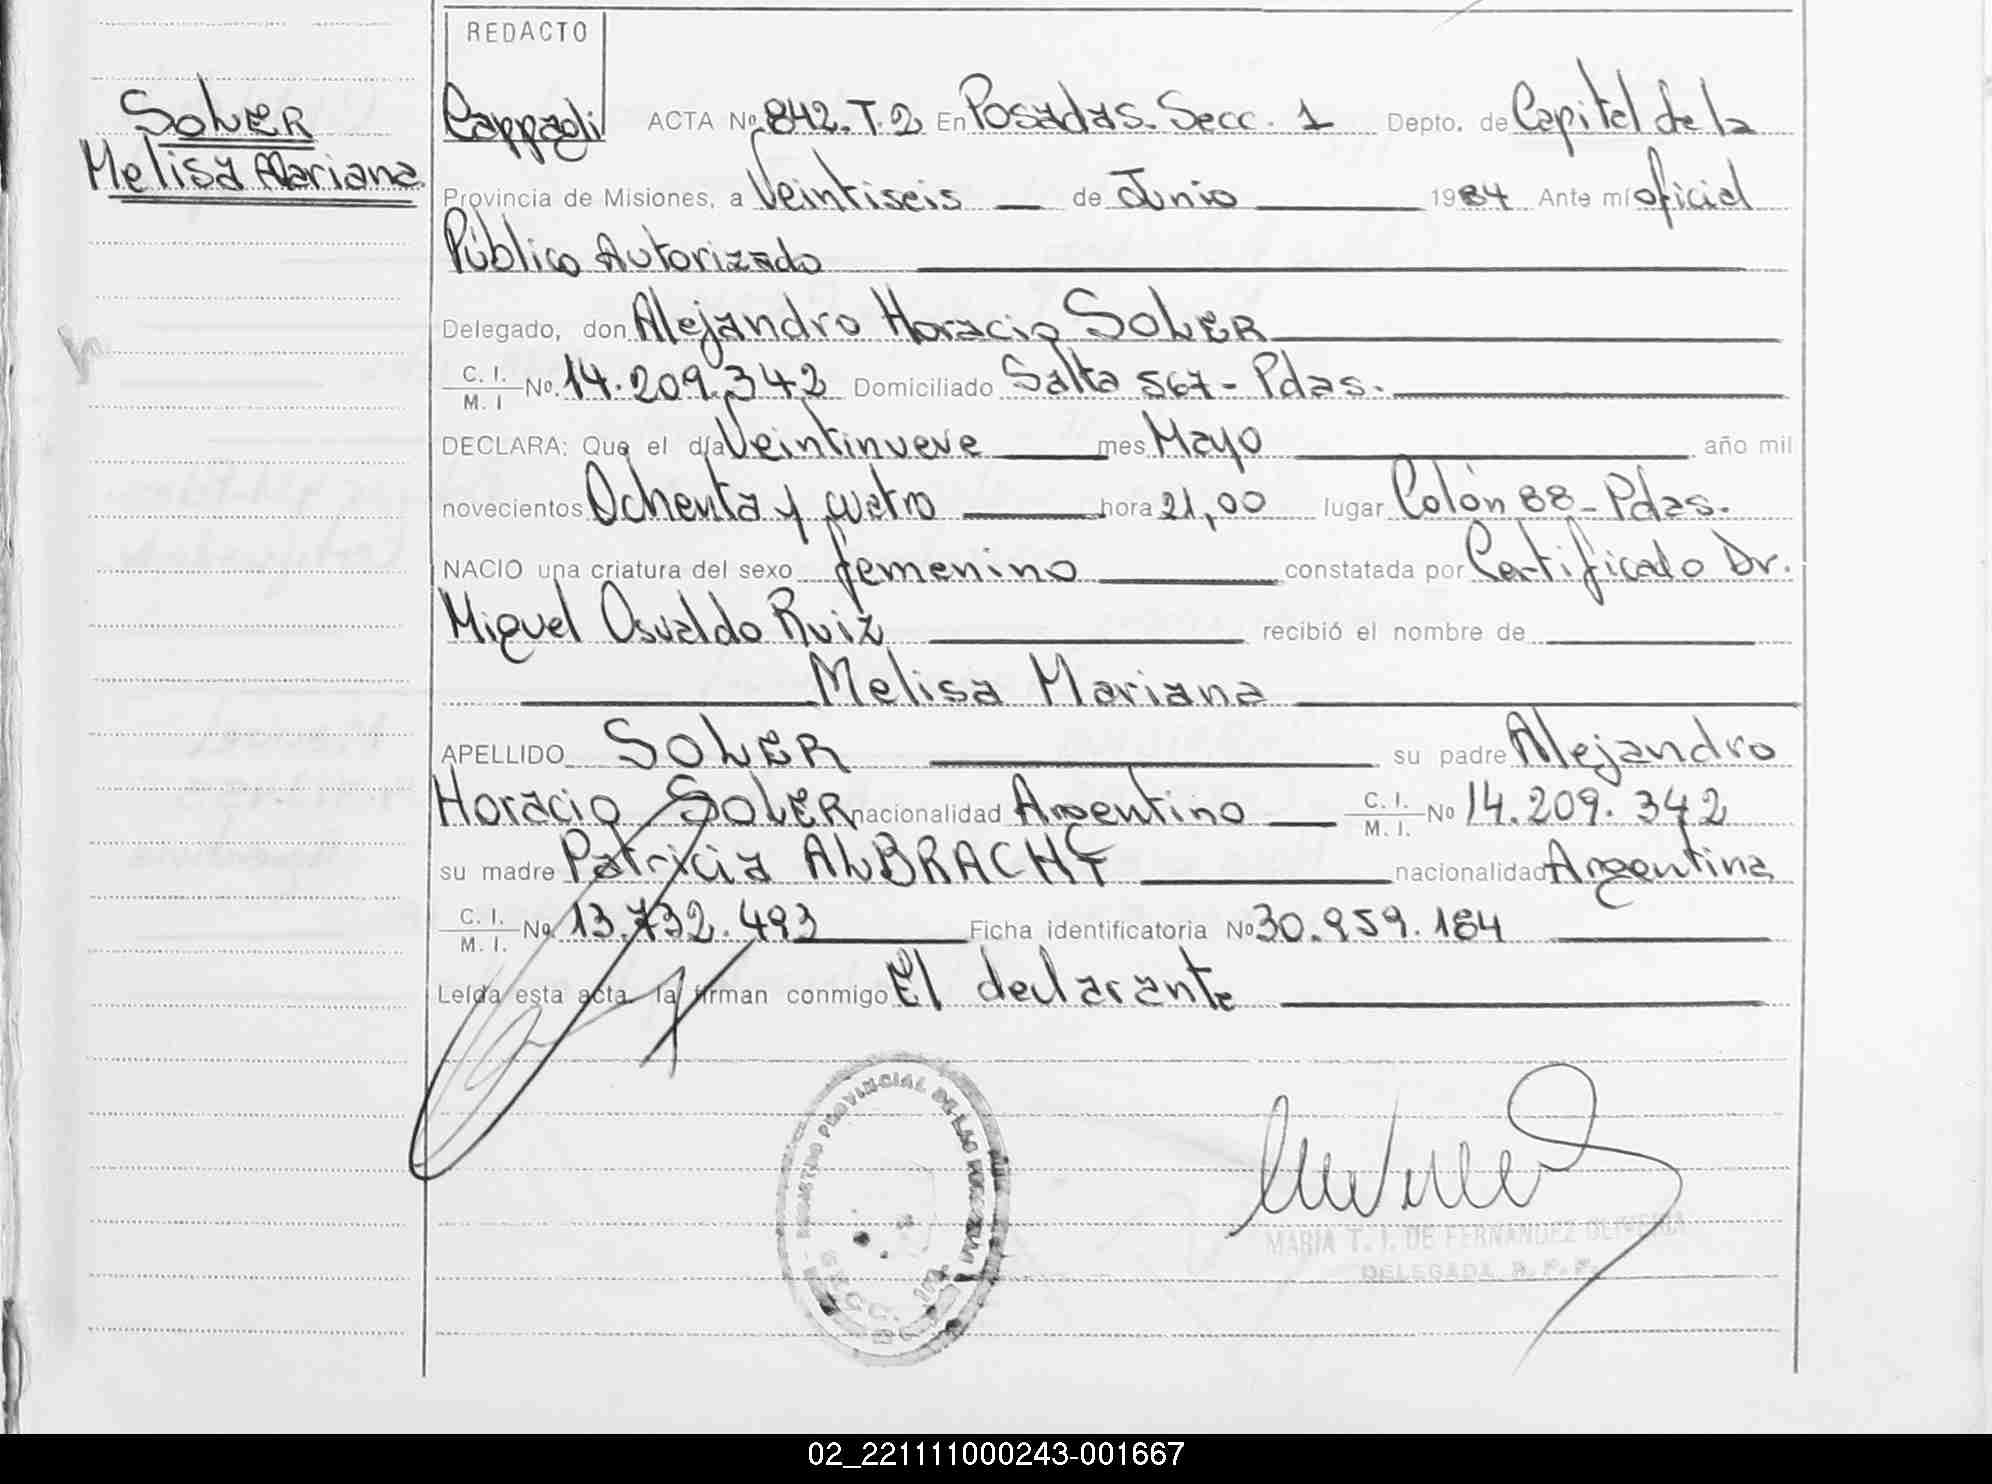 REDACTO
SOLER
Melisa Mariana
Cappagli ACTA Nº 842. T. 2 En Posadas. Secc. 1 Depto. de Capital de la
Provincia de Misiones, a Veintiseis de Junio 1984 Ante mí oficial
Público Autorizado
Delegado, don Alejandro Horacio SOLER
C. I. / M. I Nº. 14.209.342 Domiciliado Salta 567 - Pdas.
DECLARA: Que el día Veintinueve mes Mayo año mil
novecientos Ochenta y cuatro hora 21,00 lugar Colón 88 - Pdas.
NACIO una criatura del sexo femenino constatada por Certificado Dr.
Miguel Osvaldo Ruiz recibió el nombre de
Melisa Mariana
APELLIDO SOLER su padre Alejandro
Horacio SOLER nacionalidad Argentino C. I. / M. I. Nº 14.209.342
su madre Patricia ALBRACHT nacionalidad Argentina
C. I. / M. I. Nº 13.732.493 Ficha identificatoria Nº 30.959.184
Leída esta acta la firman conmigo El declarante
REGISTRO PROVINCIAL DE LAS PERSONAS
MARIA T. I. DE FERNANDEZ OLIVEIRA
DELEGADA R. P. P.
02_221111000243-001667